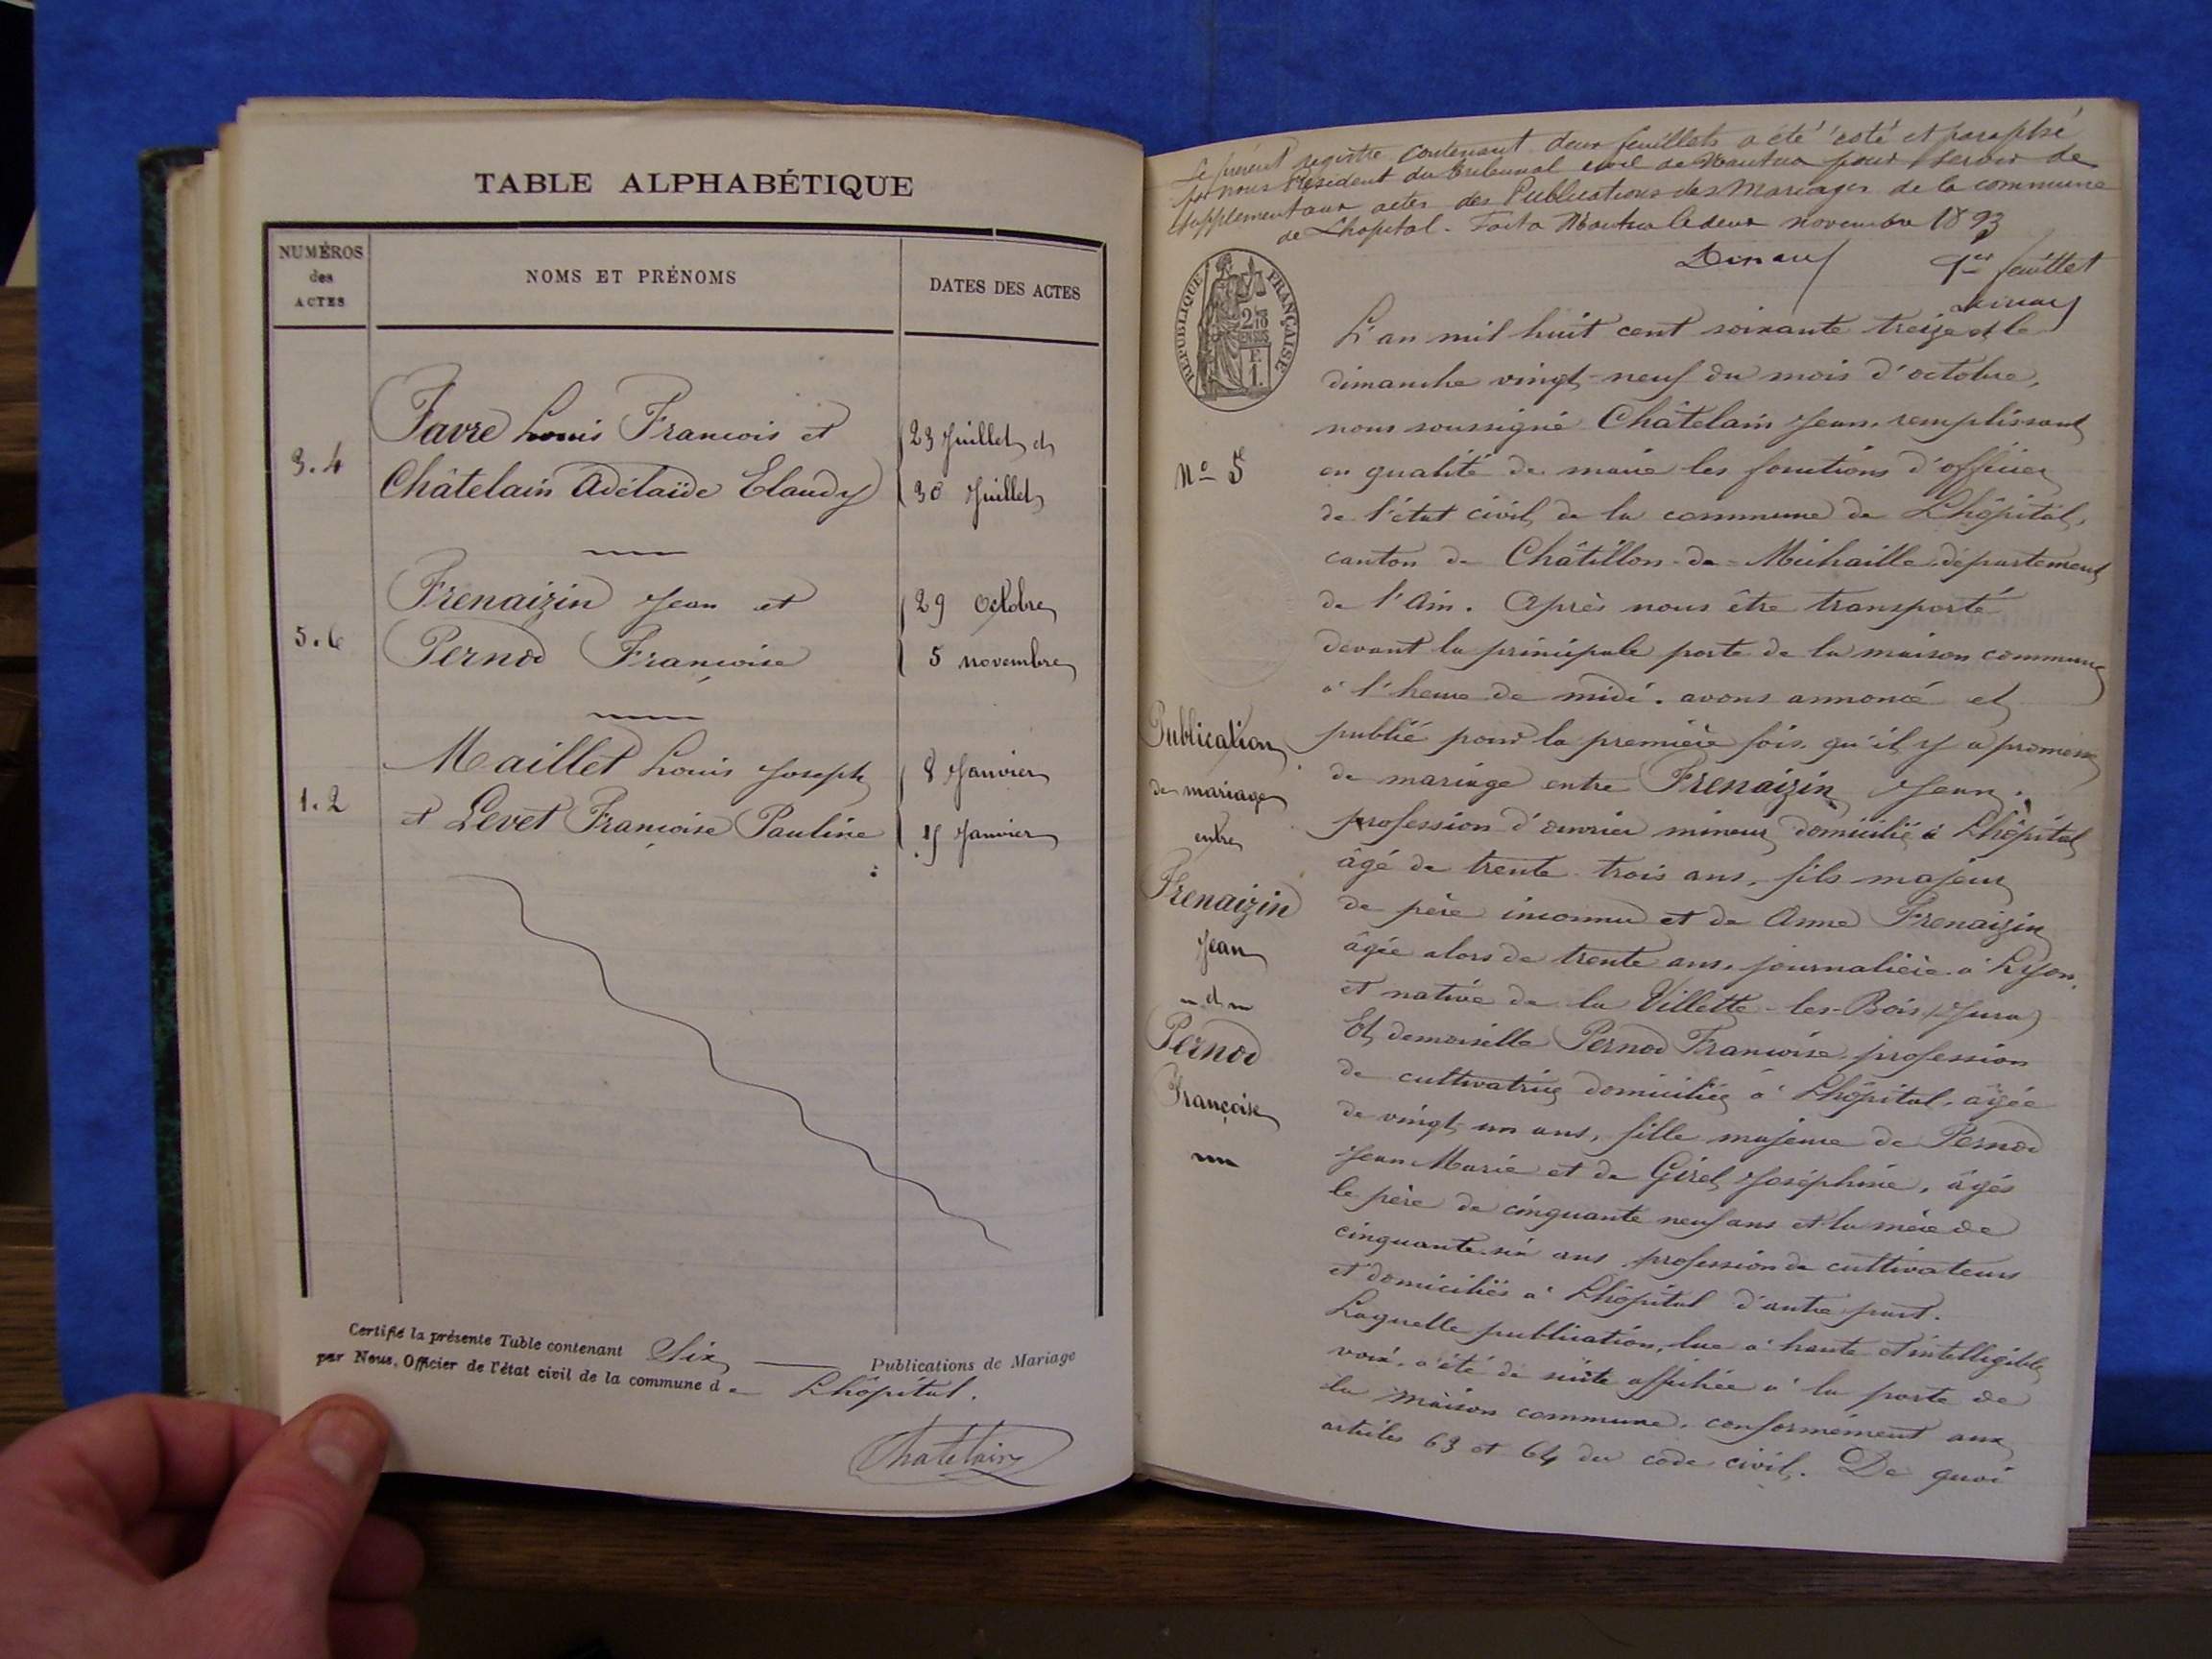 TABLE ALPHABÉTIQUE
NUMÉROS
des
ACTES
NOMS ET PRÉNOMS
DATES DES ACTES
3.4
Favre Louis Francois et
Châtelain Adélaïde Claudy
23 Juillet et
30 Juillet
5.6
Frenaizin Jean et
Pernod Françoise
29 Octobre
5 novembre
1.2
Maillet Louis Joseph
et Levet Françoise Pauline
8 Janvier
15 Janvier
Certifié la présente Table contenant Six Publications de Mariage
par Nous, Officier de l'état civil de la commune de Lhôpital.
Chatelain
Le présent registre contenant deux feuillets a été coté et paraphé
par nous Président du tribunal civil de Nantua pour servir de
supplément aux actes des Publications des Mariages de la commune
de Lhopital. Fait a Nantua le deux novembre 1893
1er feuillet
RÉPUBLIQUE FRANÇAISE
2/10 EN SUS
F.
1.
L'an mil huit cent soixante treize et le
dimanche vingt-neuf du mois d'octobre,
nous soussigné Châtelain Jean, remplissant
No 5
en qualité de maire les fonctions d'officier
de l'état civil de la commune de Lhôpital,
canton de Châtillon-de-Michaille département
de l'Ain. Après nous être transporté
devant la principale porte de la maison commune
à l'heure de midi. avons annoncé et
publié pour la première fois qu'il y a promesse
de mariage entre Frenaizin Jean.
profession d'ouvrier mineur domicilié à Lhôpital
âgé de trente trois ans, fils majeur
de père inconnu et de Anne Frenaizin
âgée alors de trente ans, journalière à Lyon,
et native de la Villette-les-Bois (Jura)
Et demoiselle Pernod Francoise profession
de cultivatrice domiciliée à Lhôpital, âgée
de vingt un ans, fille majeure de Pernod
Jean Marie et de Girel Joséphine, âgés
le père de cinquante neuf ans et la mère de
cinquante six ans profession de cultivateurs
et domiciliés à Lhôpital d'autre part.
Laquelle publication, lue à haute et intelligible
voix, a été de suite affichée à la porte de
la maison commune, conformément aux
articles 63 et 64 du code civil. De quoi
Publication
de mariage
entre
Frenaizin
Jean
et
Pernod
Françoise